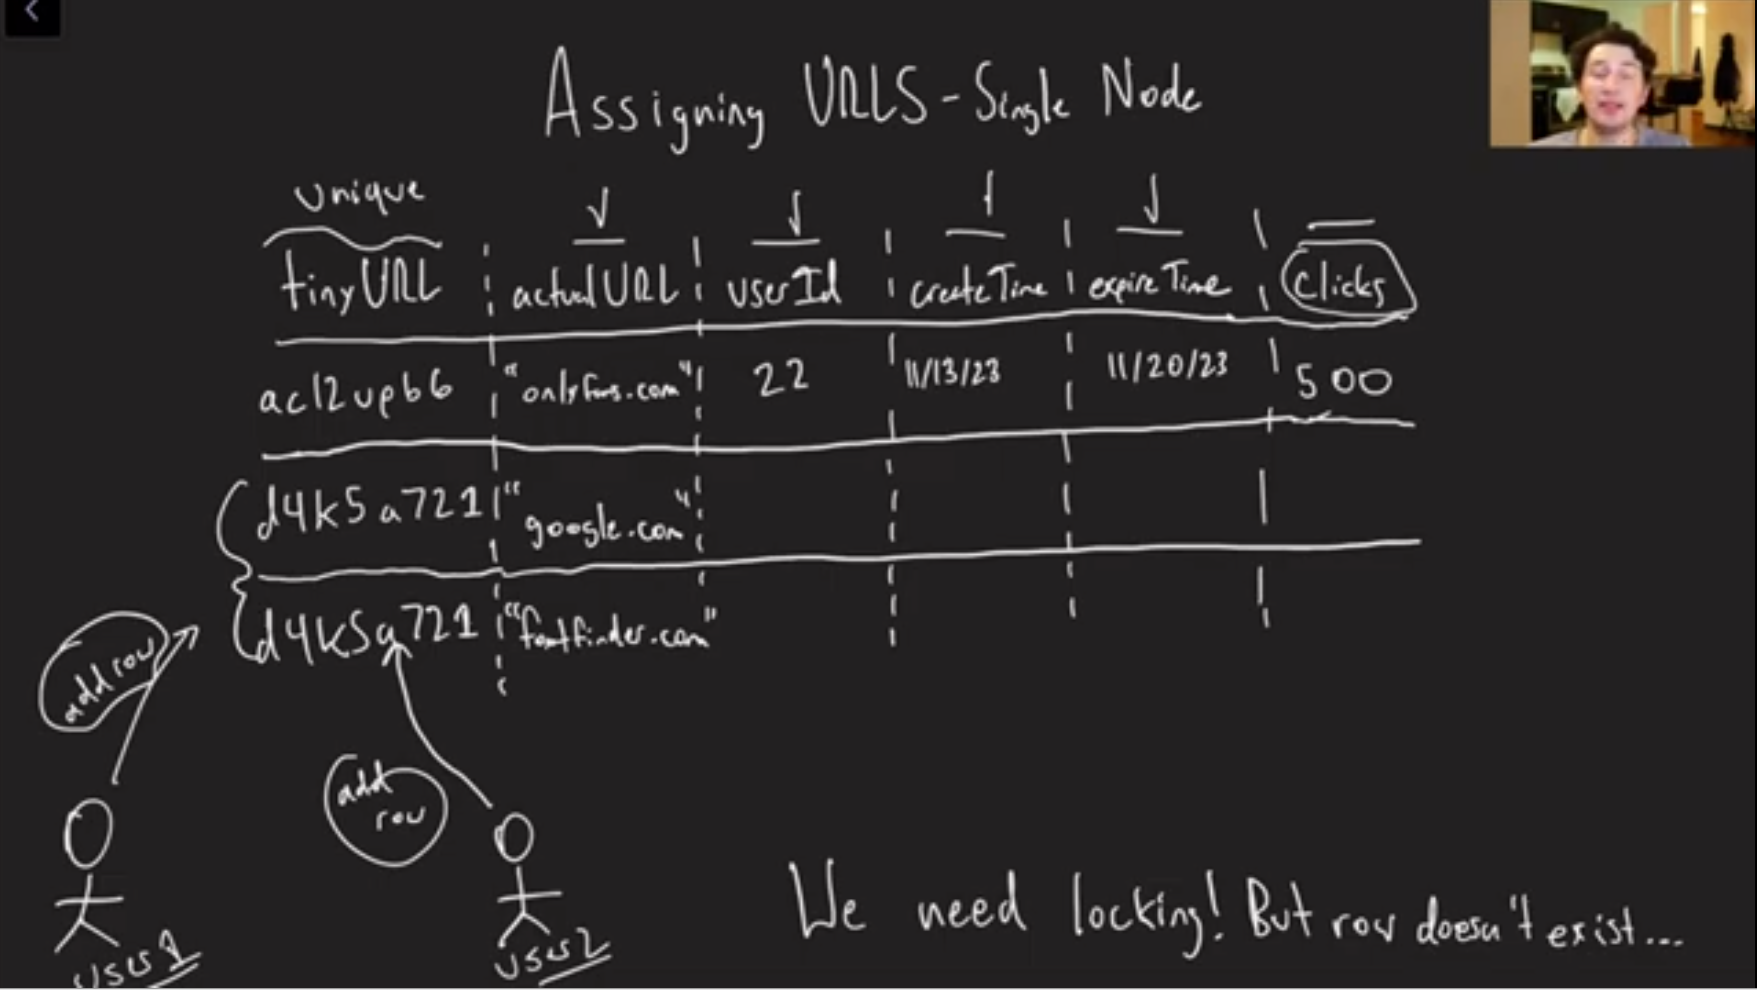 Assigning URLS - Single Node
unique
tinyURL actualURL userId createTime expireTime Clicks
acl2upb6 "onlyfans.com" 22 11/13/23 11/20/23 500
d4k5a721 "google.com"
d4k5a721 "footfinder.com"
add row
add
row
user1
user2
We need locking! But row doesn't exist...